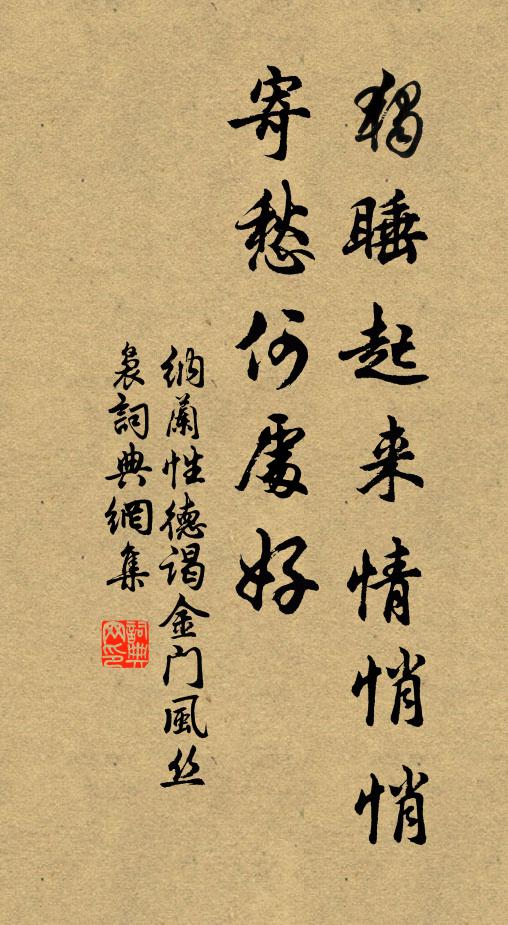 獨睡起来情悄悄
寄愁何處好
纳蘭性德谒金门風丝
袅詞典網集
詞典
网印